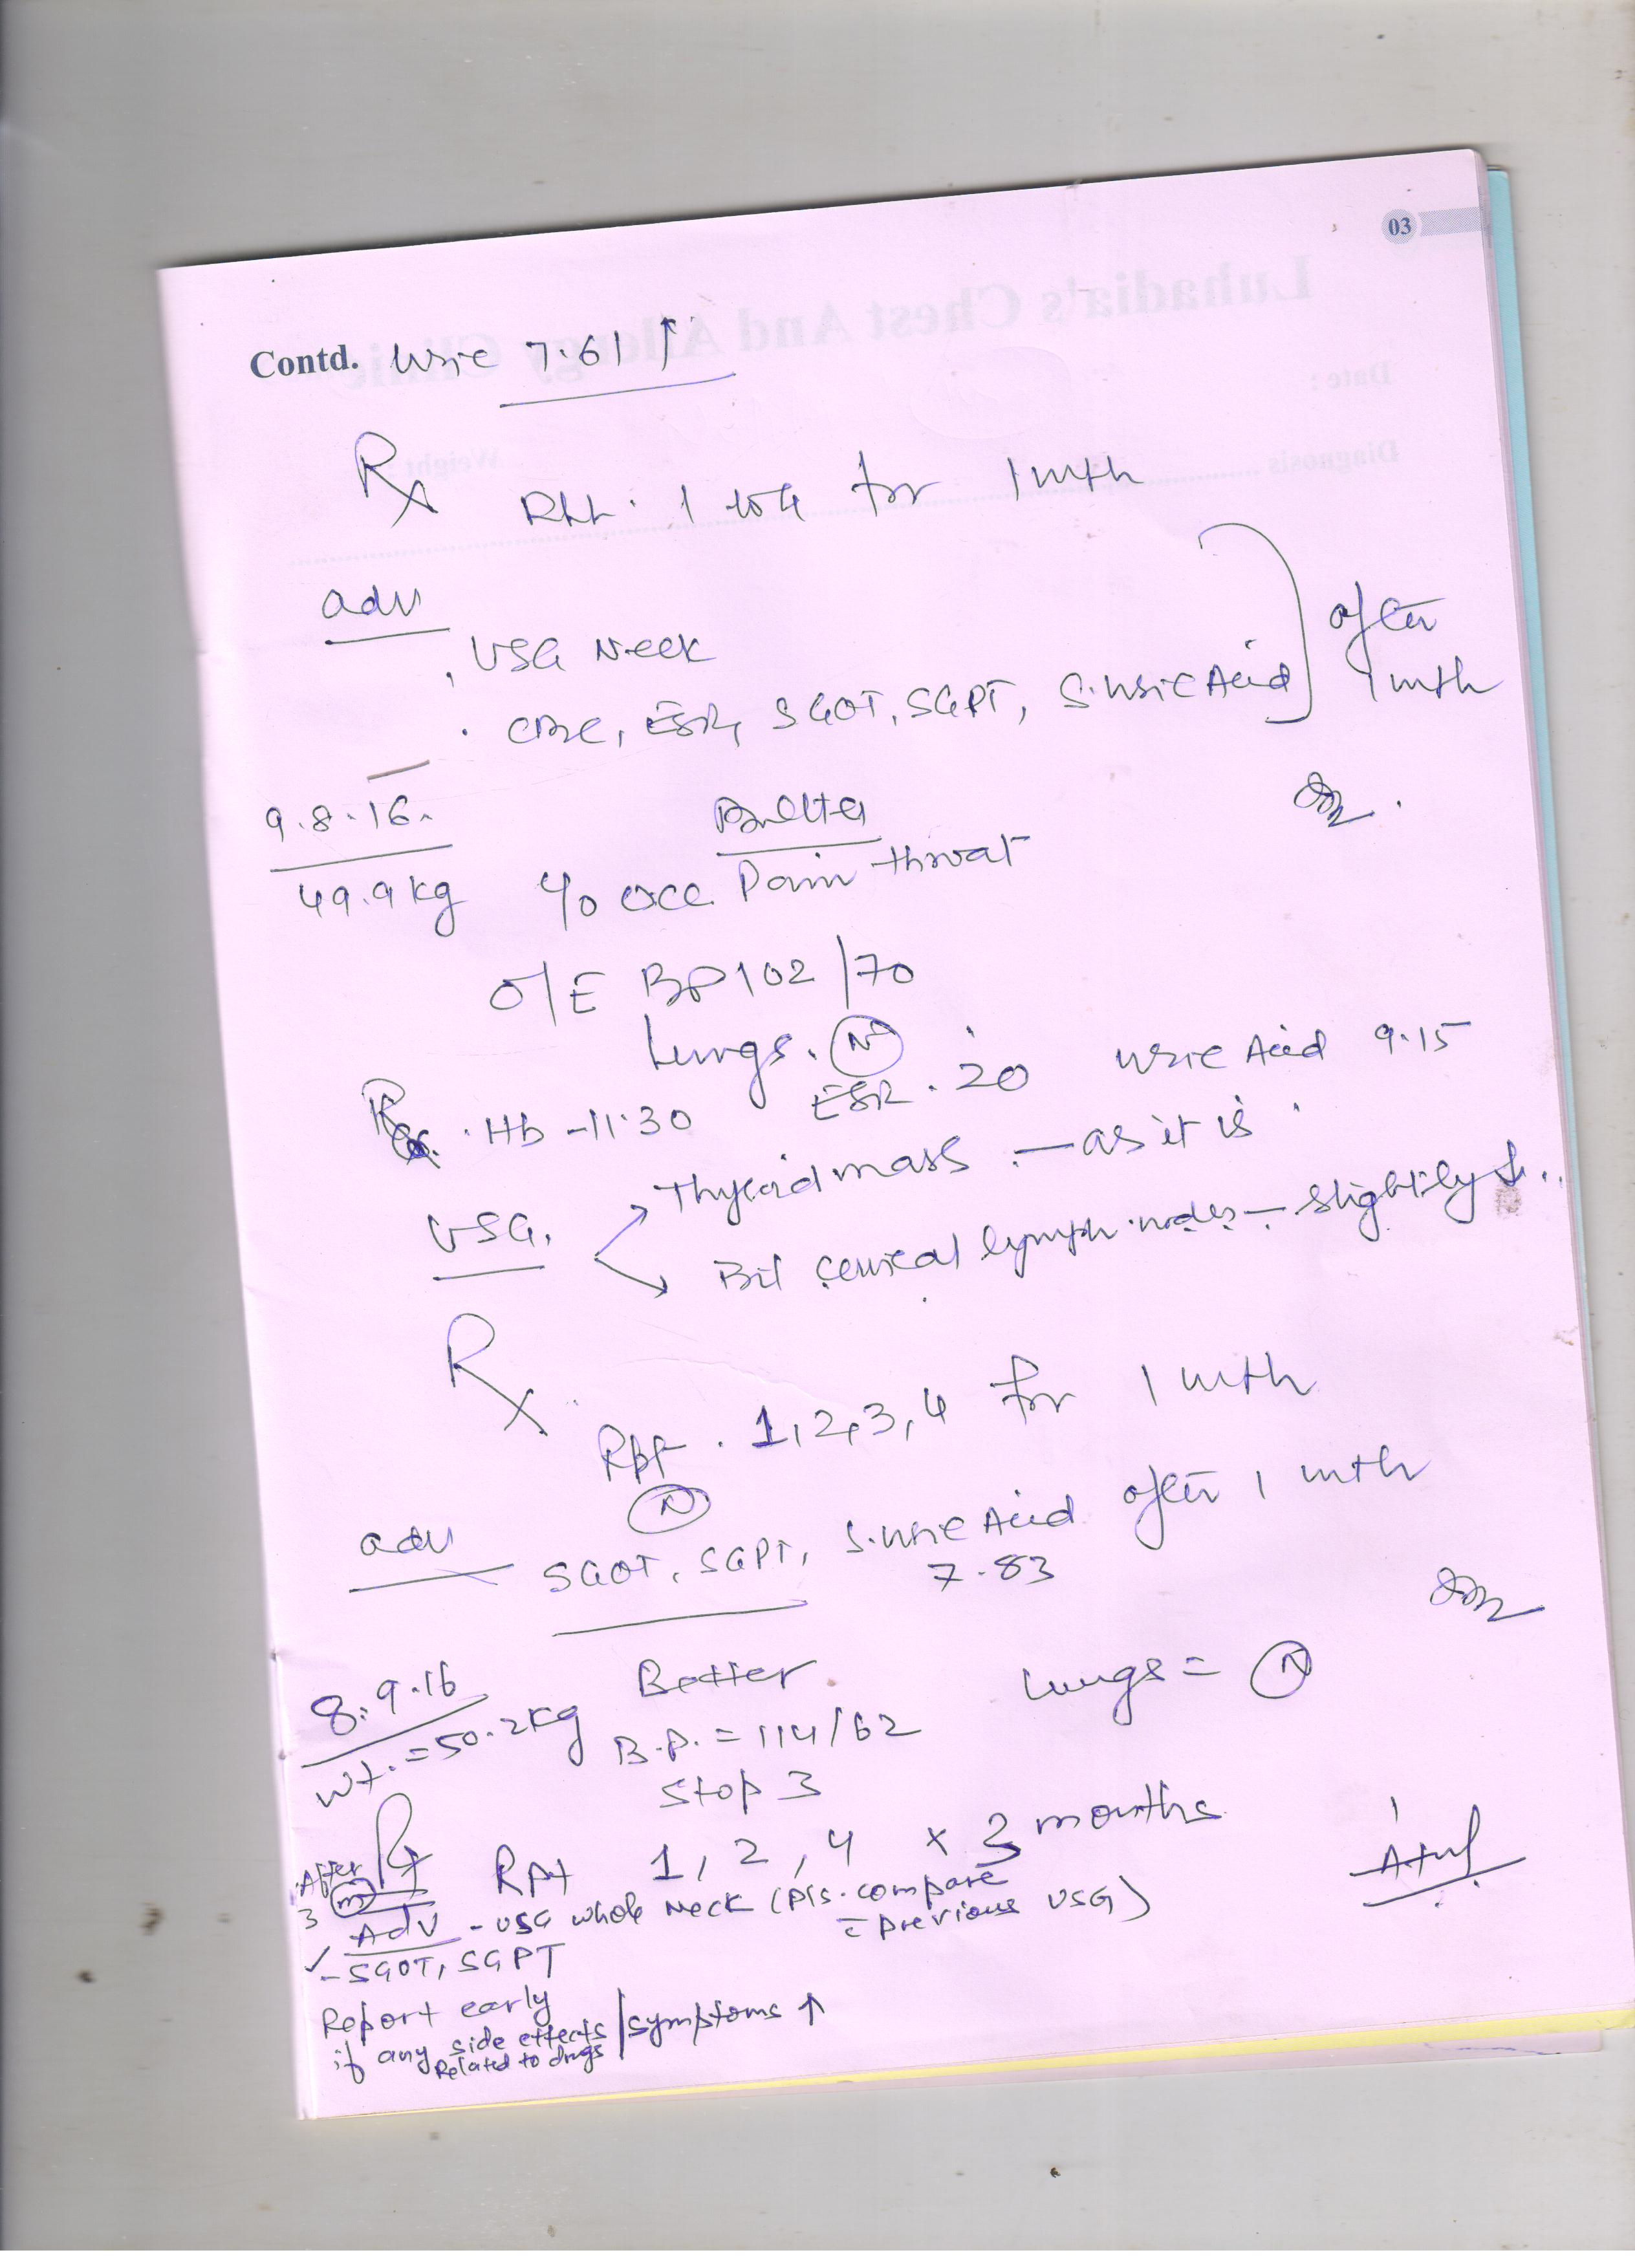 03
Contd. Uric 7.61 ↑
Rx
Rpt. 1 to 4 for 1 mth
adv
. USG Neck
. CBC, ESR, SGOT, SGPT, S. Uric Acid } after 1 mth
9.8.16.
Better
49.9 kg c/o occ. Pain throat
O/E BP 102/70
Lungs. (N)
. Hb - 11.30 ESR. 20 Uric Acid 9.15
USG. → Thyroid mass - as it is
→ Bil cervical lymph nodes - slightly ↓..
Rx
Rpt. 1, 2, 3, 4 for 1 mth
(N)
adv SGOT, SGPT, S. Uric Acid after 1 mth
7.83
8.9.16 Better Lungs = (N)
Wt. = 50.2 kg B.P. = 114/62
Stop 3
Rx Rpt 1, 2, 4 x 3 months
After 3 (m)
Adv - USG whole Neck (Pls. compare
c̄ previous USG)
✓ - SGOT, SGPT
Report early
if any side effects / symptoms ↑
Related to drugs
Luhadia's Chest And Allergy Clinic
Date :
Diagnosis Weight